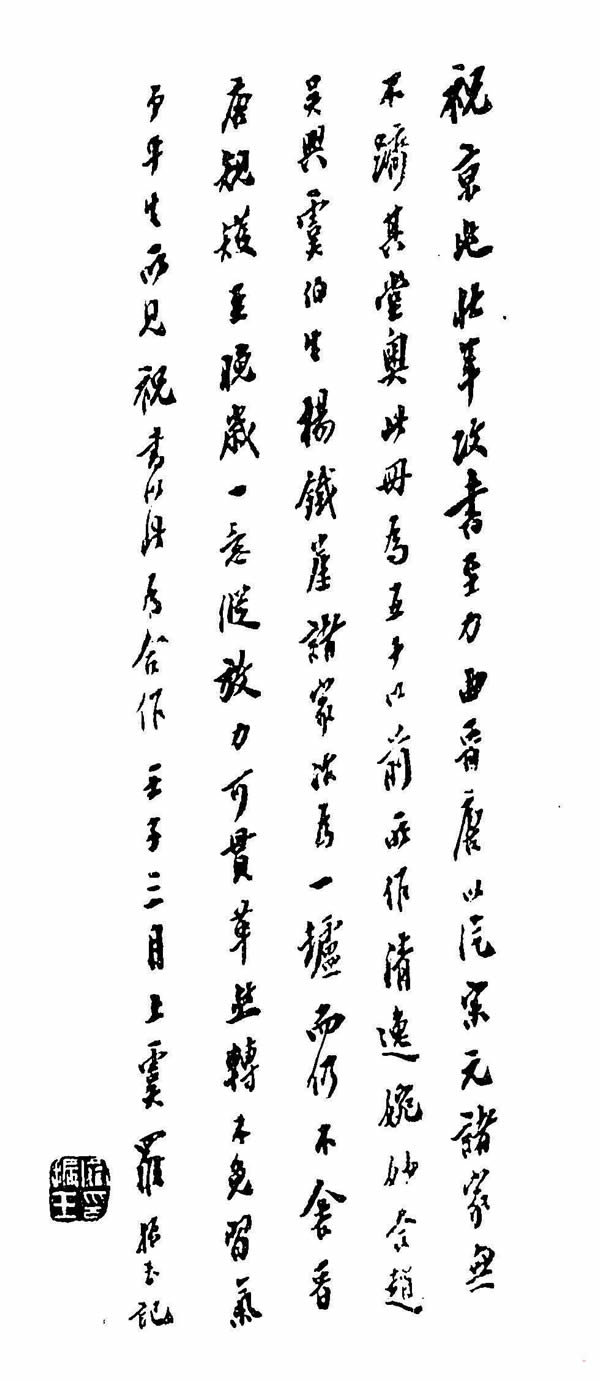 祝京兆壯年攻書至力由晉唐以汔宋元諸家無
不躋其堂奧此冊為五十以前所作清逸婉妙合趙
吳興虞伯生楊鐵崖諸家冶為一鑪而仍不舍晉
唐規矱至晚歲一意縱放力可貫革然轉不免習氣
予平生所見祝書以此為合作 壬子三月上虞羅振玉記
羅印振玉